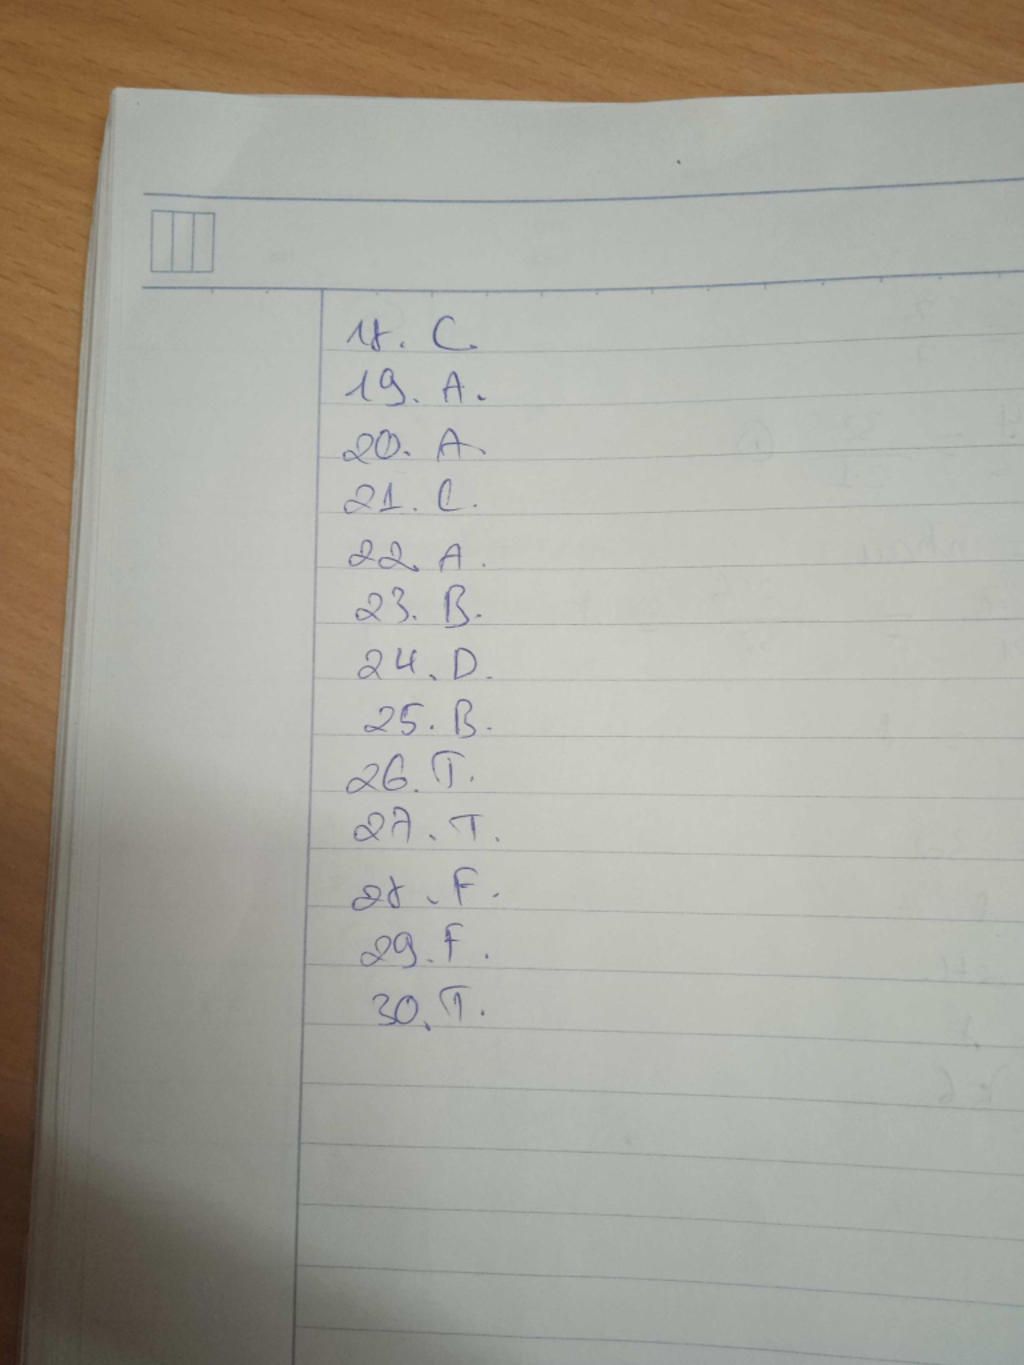 18. C.
19. A.
20. A.
21. C.
22. A.
23. B.
24. D.
25. B.
26. T.
27. T.
28. F.
29. F.
30. T.